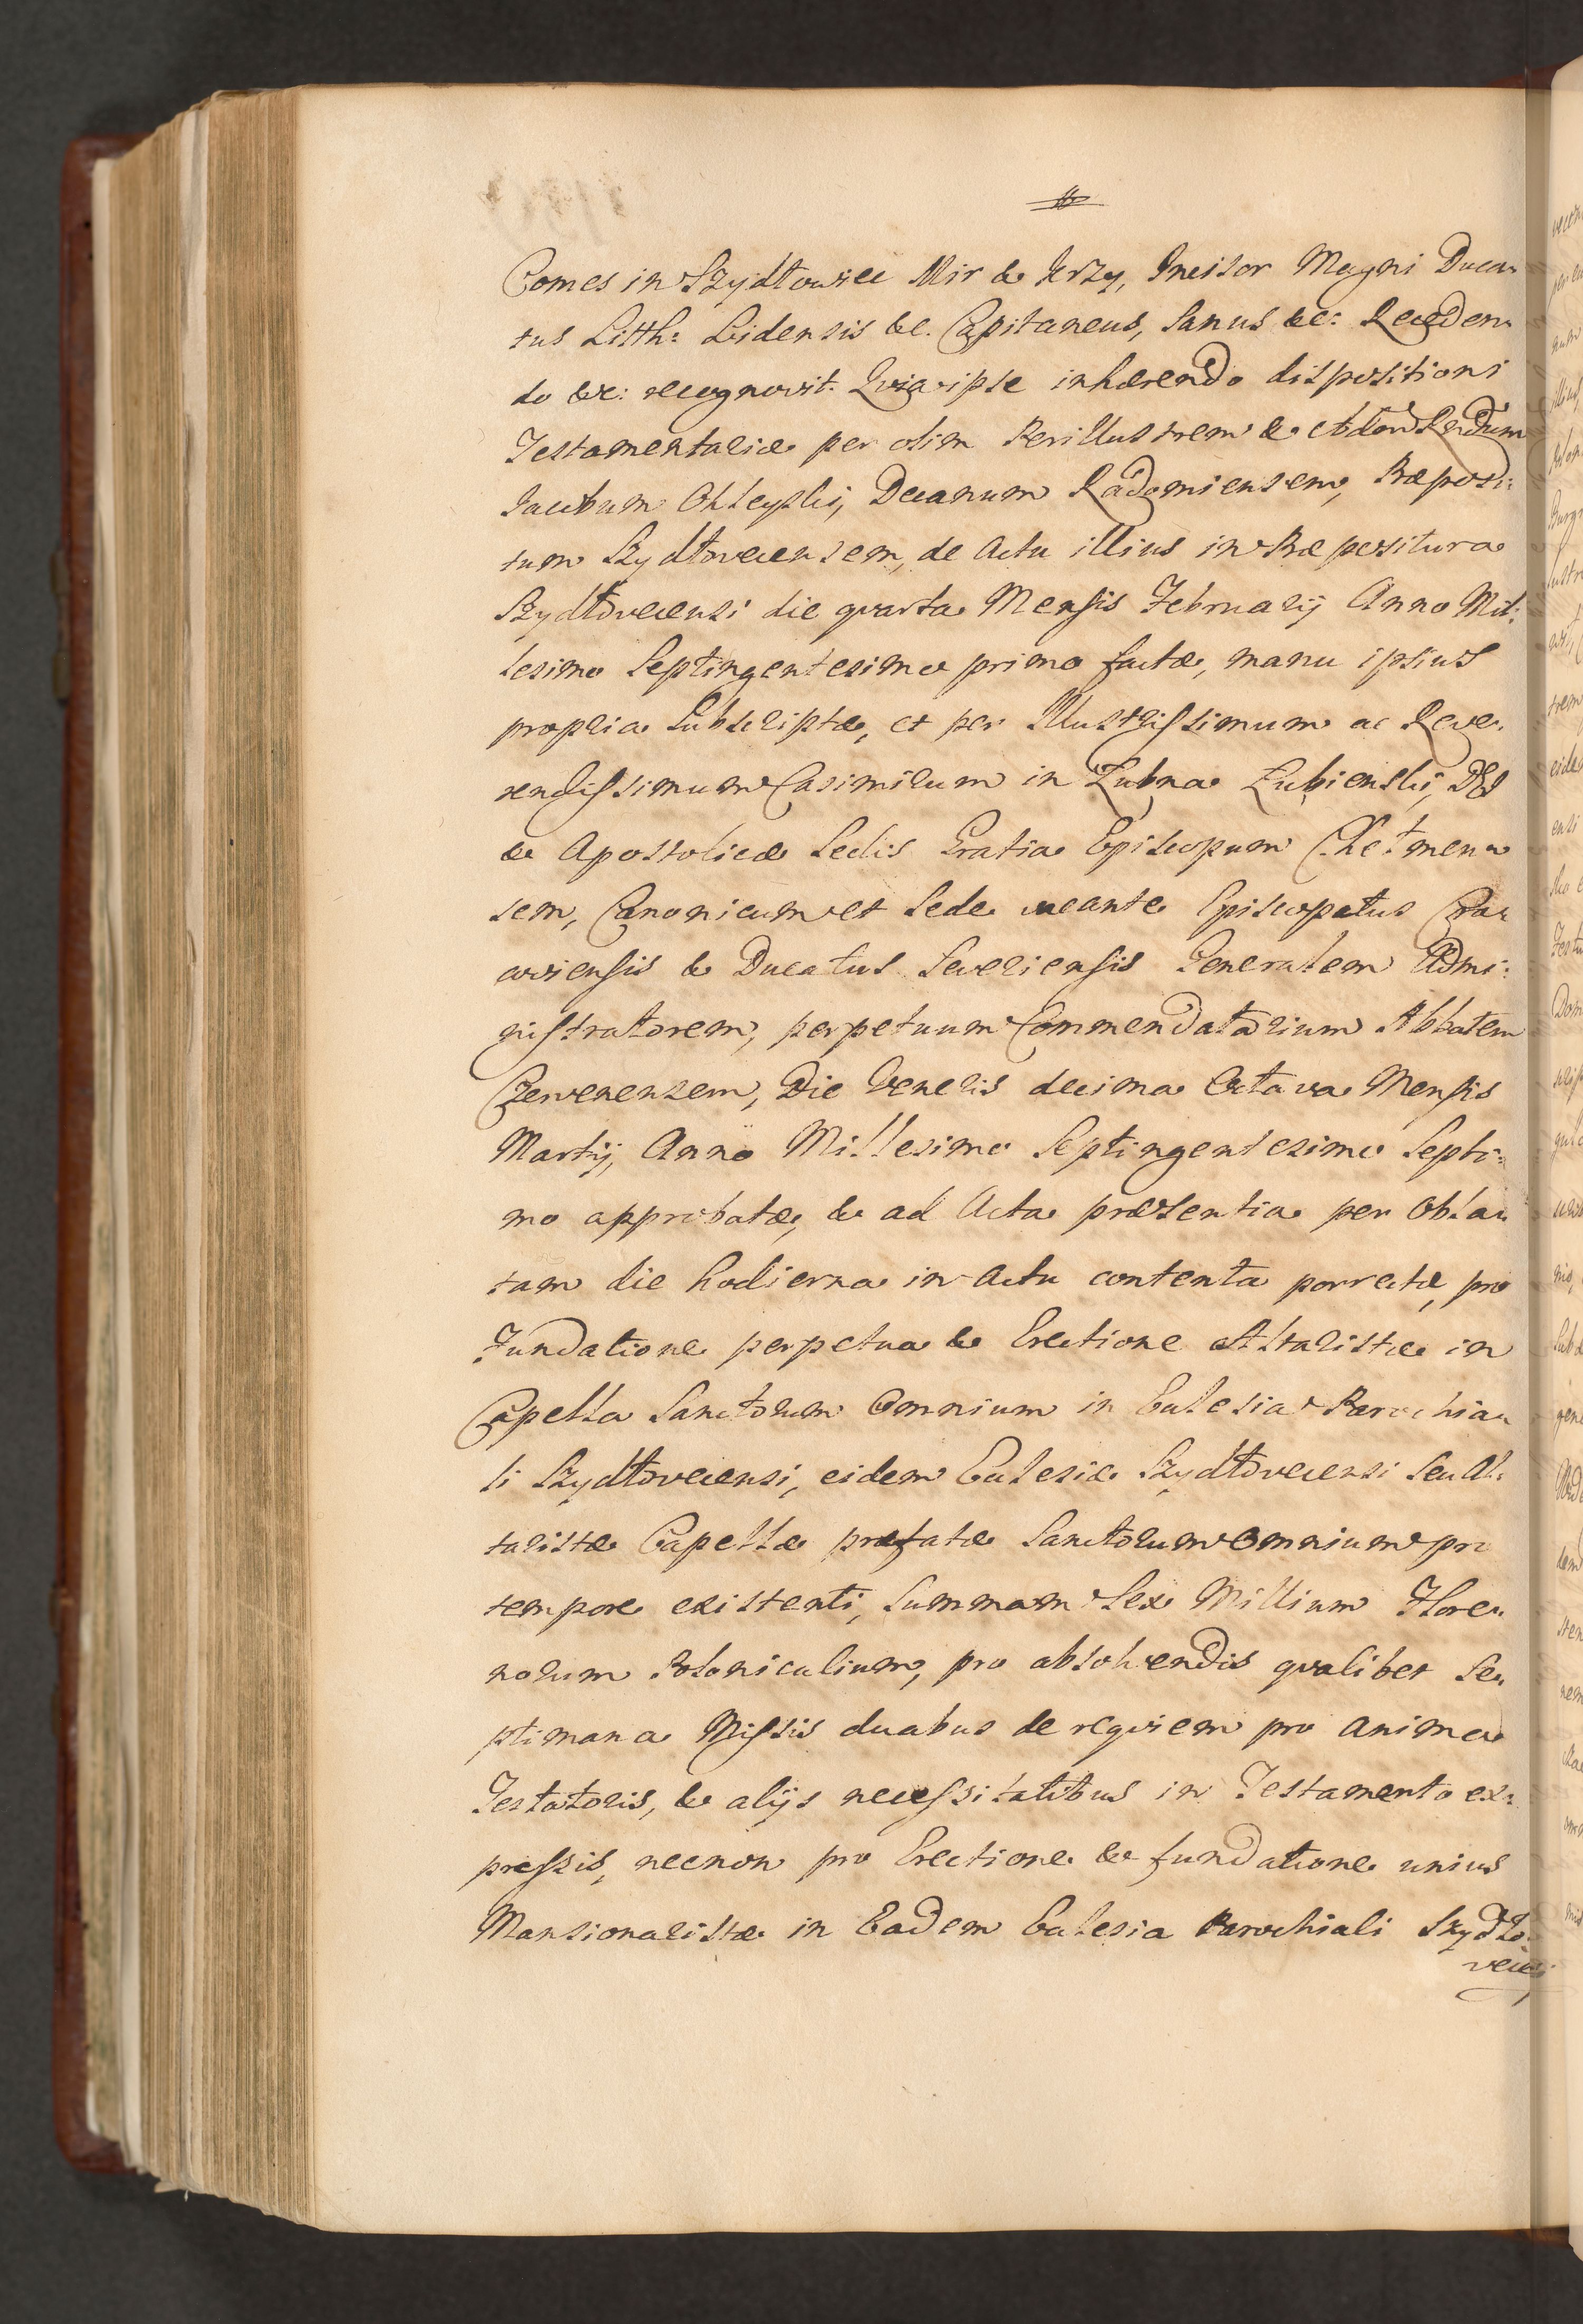 Comes in Szydłowiec Mir & Krzy, Incisor Magni Duca-
tus Litth: Lidensis &c. Capitaneus, Sanus &c: Receden-
do &c: recognovit. Qvia ipse inhærendo dispositioni
Testamentariæ per olim Perillustrem & Adm Rendum
Jacobum Olszeyski, Decanum Radomiensem, Præposi:
tum Szydłoveciensem, de Actu illius in Præpositura
Szydłoveciensi die qvarta Mensis Februarij Anno Mil:
lesimo Septingentesimo primo factæ, manu ipsius
propria Subscriptæ, et per Illustrissimum ac Reve-
rendissimum Casimirum in Łubna Łubienski, Dei
& Apostolicæ Sedis Gratia Episcopum Chełmen-
sem, Canonicum et Sede vacante Episcopatus Cra-
coviensis & Ducatus Severiensis Generalem Admi:
nistratorem, perpetuum Commendatarium Abbatem
Czervenensem, Die Veneris decima Octava Mensis
Martij, Anno Millesimo Septingentesimo Septi:
mo approbatæ, & ad Acta præsentia per Obla-
tam die hodierna in Actu contenta porrectæ, pro
Fundatione perpetua & Erectione Altaristæ in
Capella Sanctorum Omnium in Ecclesia Parochia-
li Szydłoveciensi, eidem Ecclesiæ Szydłoveciensi seu Al-
taristæ Capellæ præfatæ Sanctorum Omnium pro
tempore existenti, Summam Sex Millium Flore-
norum Polonicalium, pro absolvendis qvalibet Se-
ptimana Missis duabus de reqviem pro anima
Testatoris, & alijs necessitatibus in Testamento ex:
pressis, necnon pro Erectione & fundatione unius
Mansionaristæ in Eadem Ecclesia Parochiali Szydło-
vecie